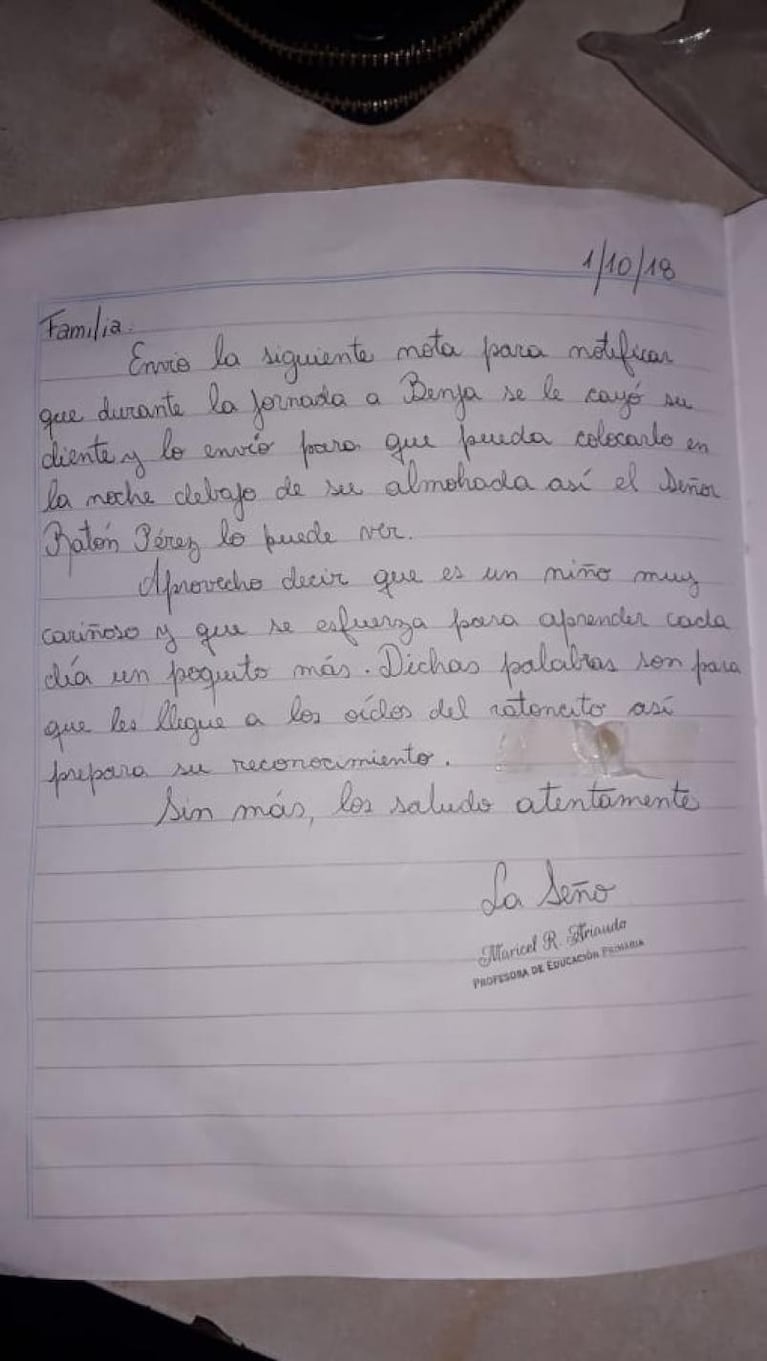 1/10/18
Familia:
Envio la siguiente nota para notificar
que durante la jornada a Benja se le cayó su
diente y lo envío para que pueda colocarlo en
la noche debajo de su almohada así el Señor
Ratón Pérez lo puede ver.
Aprovecho decir que es un niño muy
cariñoso y que se esfuerza para aprender cada
día un poquito más. Dichas palabras son para
que les llegue a los oídos del ratoncito así
prepara su reconocimiento.
Sin más, los saludo atentamente
La Seño
Maricel R. Ariaudo
PROFESORA DE EDUCACIÓN PRIMARIA